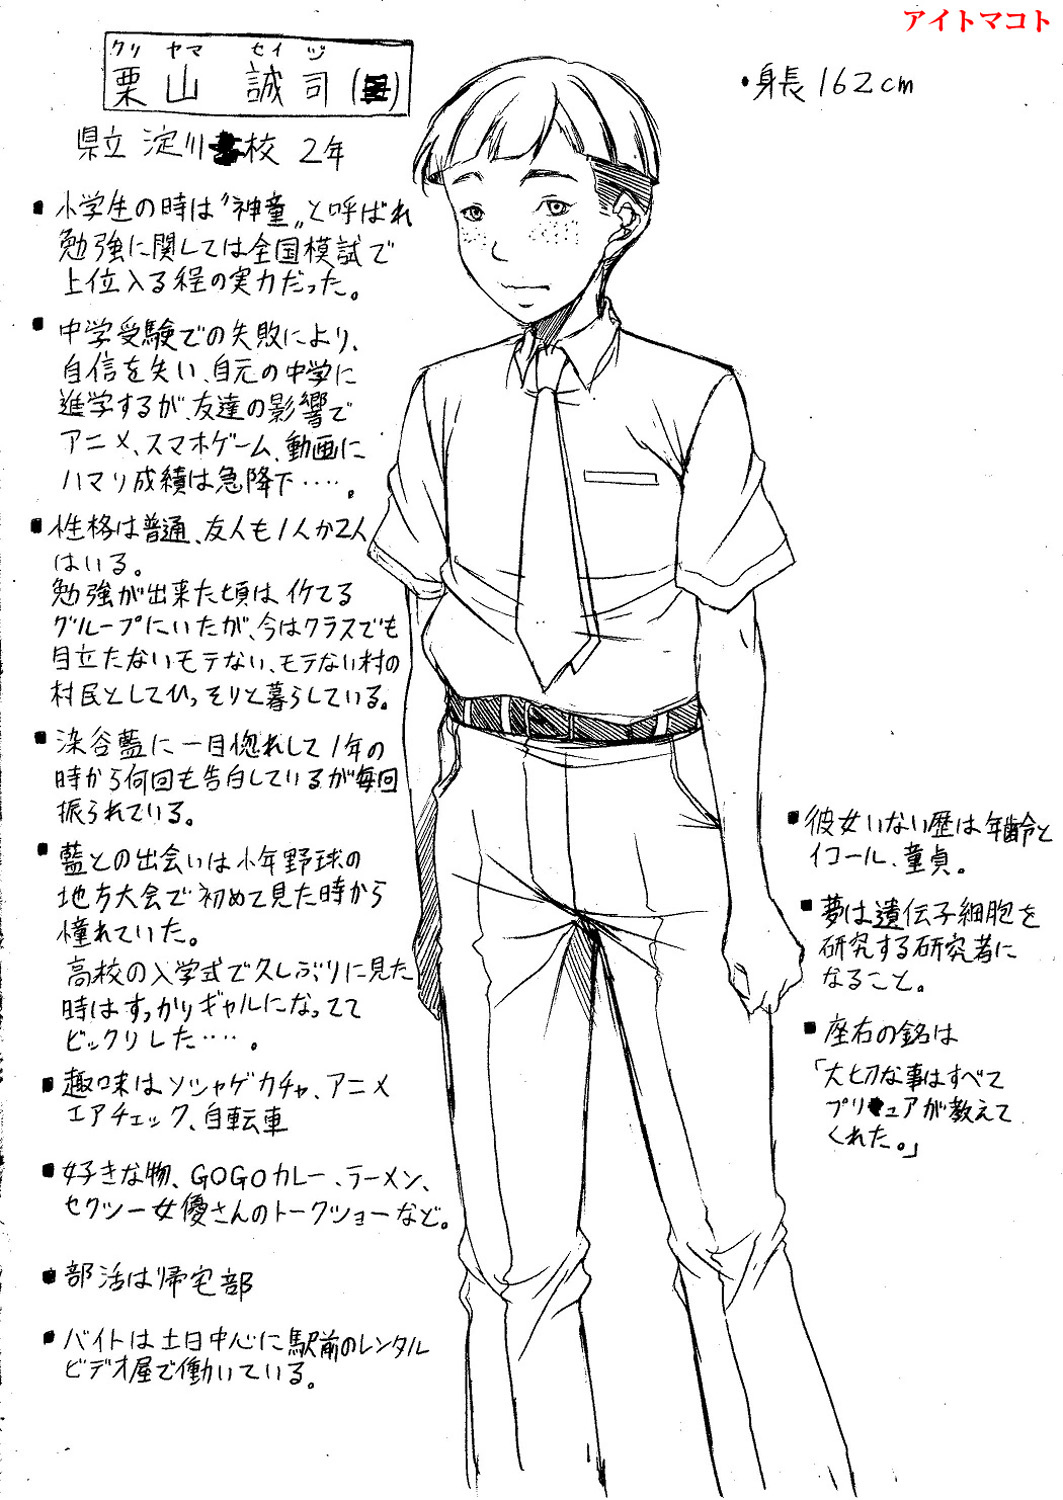 アイトマコト
クリ ヤマ セイジ
栗山 誠司
・身長162cm
県立 淀川 校 2年
■小学生の時は〝神童〟と呼ばれ
勉強に関しては全国模試で
上位入る程の実力だった。
■中学受験での失敗により、
自信を失い、自元の中学に
進学するが、友達の影響で
アニメ、スマホゲーム、動画に
ハマり成績は急降下‥‥。
■性格は普通、友人も1人か2人
はいる。
勉強が出来た頃は、イケてる
グループにいたが、今はクラスでも
目立たないモテない、モテない村の
村民としてひっそりと暮らしている。
■染谷藍に一目惚れして1年の
時から何回も告白しているが毎回
振られている。
■藍との出会いは少年野球の
地方大会で初めて見た時から
憧れていた。
高校の入学式で久しぶりに見た
時はすっかりギャルになってて
ビックリした‥‥。
■趣味はソシャゲガチャ、アニメ
エアチェック、自転車
■好きな物、GOGOカレー、ラーメン、
セクシー女優さんのトークショーなど。
■部活は帰宅部
■バイトは土日中心に駅前のレンタル
ビデオ屋で働いている。
■彼女いない歴は年齢と
イコール、童貞。
■夢は遺伝子細胞を
研究する研究者に
なること。
■座右の銘は
「大切な事はすべて
プリ ュアが教えて
くれた。」